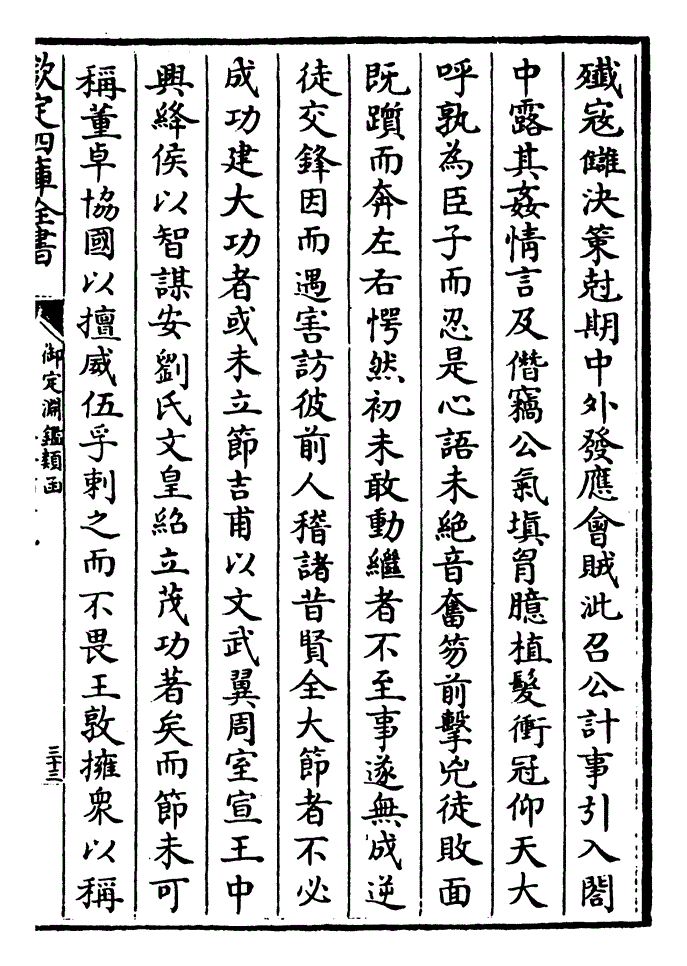 殲寇讎決策尅期中外發應會賊泚召公計事引入閤
中露其姦情言及僭竊公氣塡胷臆植髮衝冠仰天大
呼孰為臣子而忍是心語未絶音奮笏前擊兇徒敗面
既躓而奔左右愕然初未敢動繼者不至事遂無成逆
徒交鋒因而遇害訪彼前人稽諸昔賢全大節者不必
成功建大功者或未立節吉甫以文武翼周室宣王中
興絳侯以智謀安劉氏文皇紹立茂功著矣而節未可
稱董卓協國以擅威伍孚剌之而不畏王敦擁衆以稱
欽定四庫全書
御定淵鑑類函
三十三